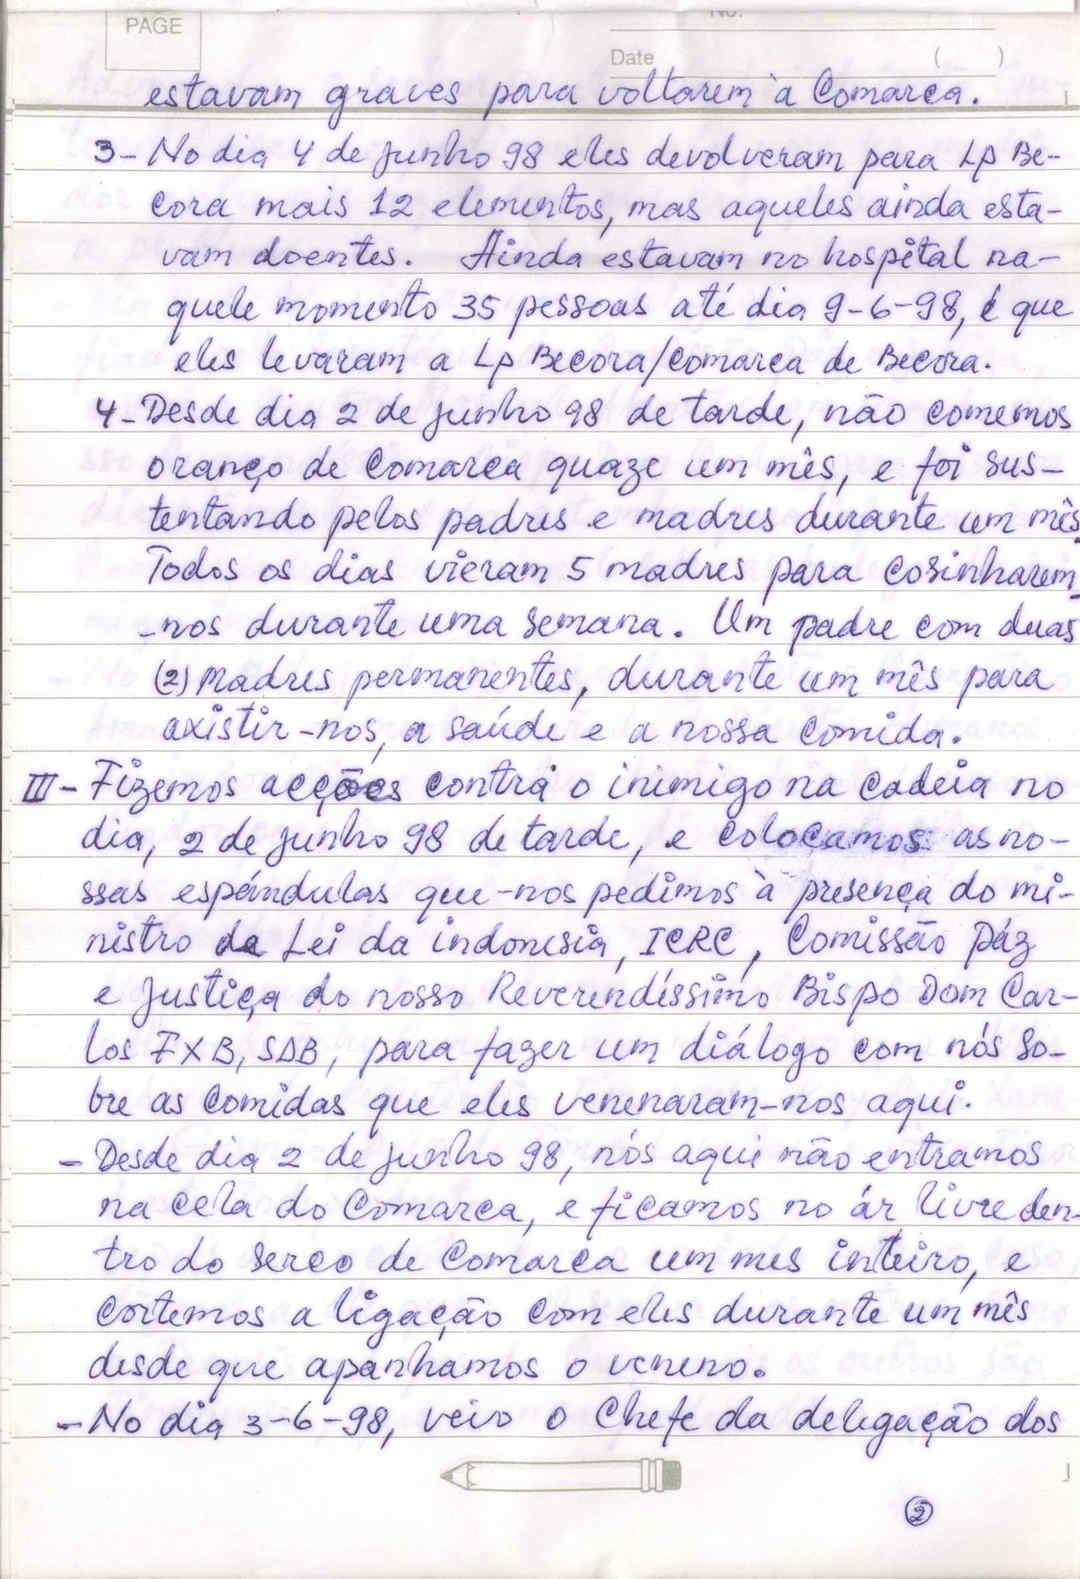 PAGE
No.
Date ( )
estavam graves para voltarem à Comarca.
3- No dia 4 de junho 98 eles devolveram para LP Be-
cora mais 12 elementos, mas aqueles ainda esta-
vam doentes. Ainda estavam no hospital na-
quele momento 35 pessoas até dia 9-6-98, é que
eles levaram a LP Becora/Comarca de Becora.
4- Desde dia 2 de junho 98 de tarde, não comemos
o ranço de Comarca quaze um mês, e foi sus-
tentando pelos padres e madres durante um mês.
Todos os dias vieram 5 madres para cosinharem-
-nos durante uma semana. Um padre com duas
(2) Madres permanentes, durante um mês para
axistir-nos, a saúde e a nossa comida.
III- Fizemos acções contra o inimigo na cadeia no
dia, 2 de junho 98 de tarde, e colocamos as no-
ssas espândulas que-nos pedimos à presença do mi-
nistro da Lei da indonesia, ICRC, Comissão Páz
e Justiça do nosso Reverendíssimo Bispo Dom Car-
los FXB, SDB, para fazer um diálogo com nós so-
bre as comidas que eles venenaram-nos aqui.
- Desde dia 2 de junho 98, nós aqui não entramos
na cela do Comarca, e ficamos no ár livre den-
tro do serco de Comarca um mes inteiro, e
cortemos a ligação com eles durante um mês
desde que apanhamos o veneno.
- No dia 3-6-98, veio o Chefe da delegação dos
2